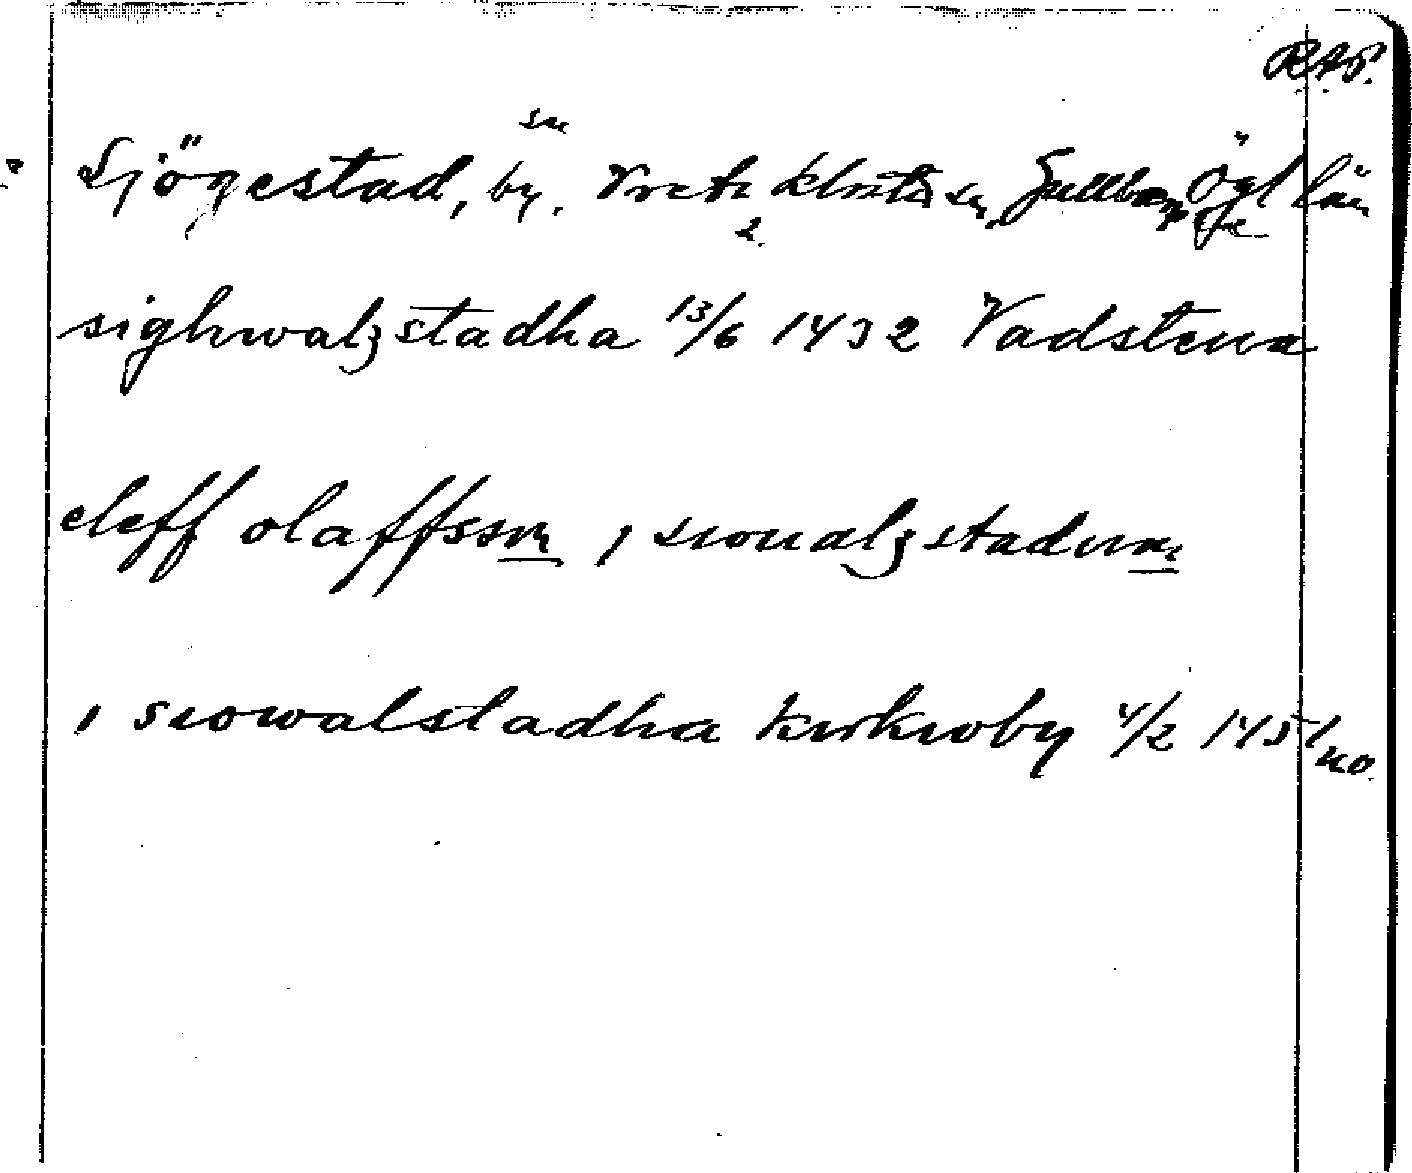 RAP.
sn
Sjögestad, by. Vreta klosters sn, Gullberg Ögl län
2.
sighwalzstadha 13/6 1432 Vadstena
eleff olaffsson ı sıoualzstadum
ı sıowalstadha kirkıoby 4/2 1451 no